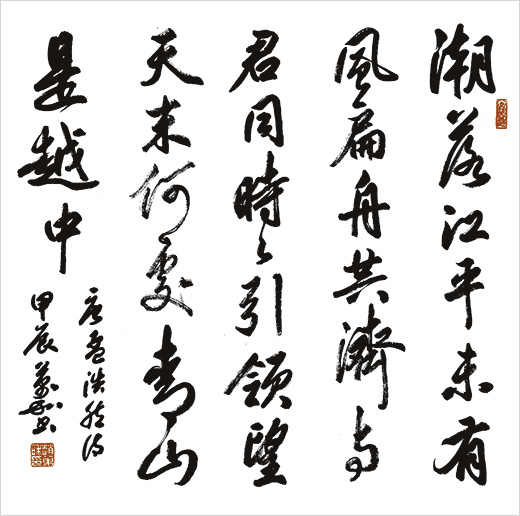 潮落江平未有
風扁舟共濟与
君同時々引領望
天末何處青山
是越中
唐孟浩然诗
甲辰